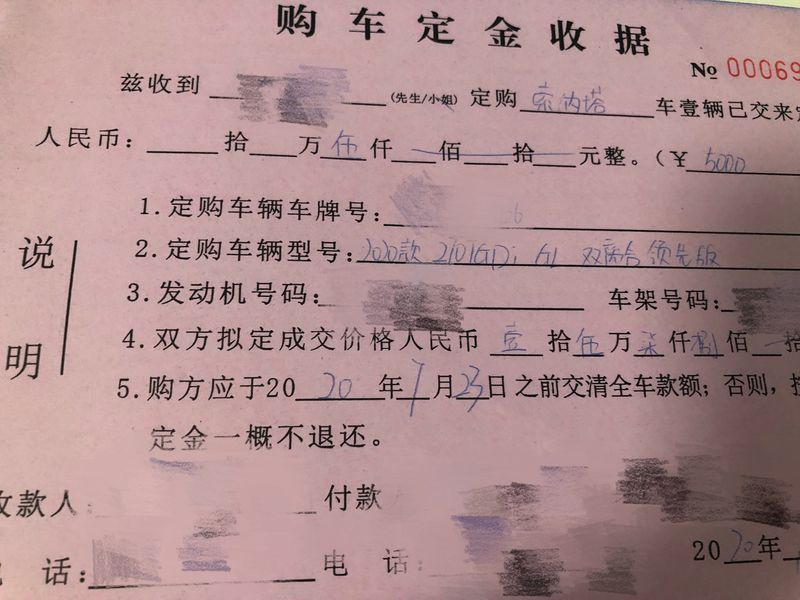 购车定金收据
№ 00069
兹收到 (先生/小姐) 定购 索纳塔 车壹辆已交来定
人民币: 拾 万 伍 仟 佰 拾 元整。(¥ 5000
1.定购车辆车牌号: 6
2.定购车辆型号: 2020款 270TGDi GL 双离合 领先版
说
3.发动机号码: 车架号码:
4.双方拟定成交价格人民币 壹 拾 伍 万 柒 仟 捌 佰 拾
明
5.购方应于20 20 年 7 月 23 日之前交清全车款额;否则,
定金一概不退还。
收款人 付款
电 话: 电 话:
20 20 年